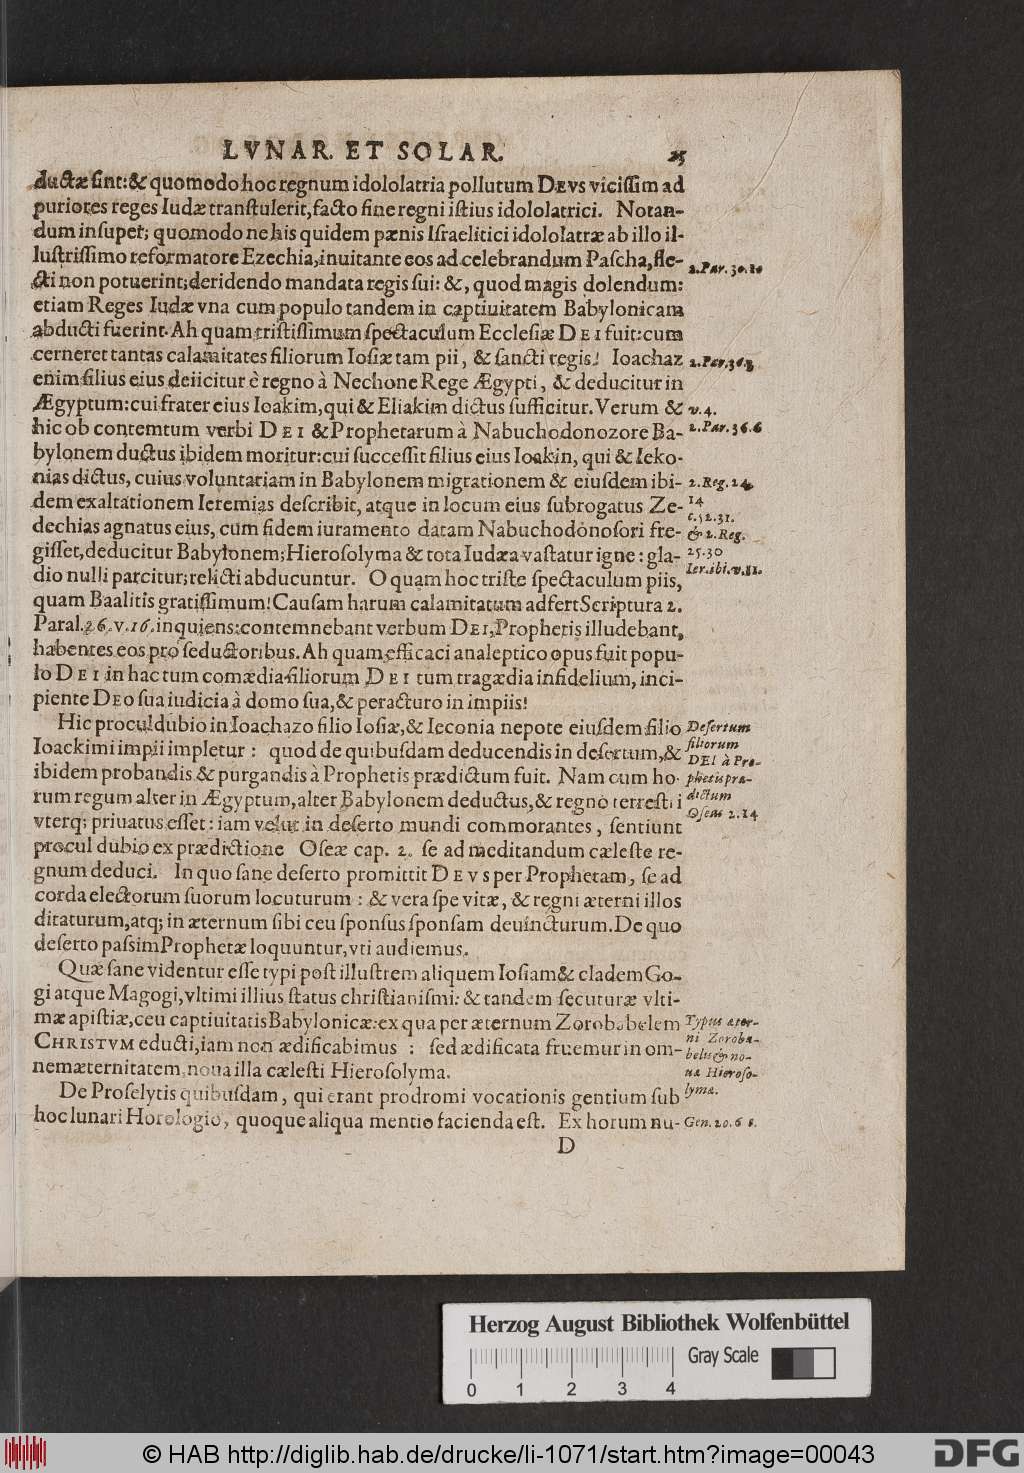 LVNAR. ET SOLAR. 25
ductæ ſint: & quomodo hoc regnum idololatria pollutum DEVS viciſſim ad
puriores reges Iudæ tranſtulerit, facto fine regni iſtius idololatrici. Notan-
dum inſuper; quomodo ne his quidem pænis Iſraelitici idololatræ ab illo il-
luſtriſſimo reformatore Ezechia, inuitante eos ad celebrandum Paſcha, fle-
2. Par. 30. 10
cti non potuerint; deridendo mandata regis ſui: &, quod magis dolendum:
etiam Reges Iudæ vna cum populo tandem in captiuitatem Babylonicam
abducti fuerint. Ah quam triſtiſſimum ſpectaculum Eccleſiæ DEI fuit: cum
cerneret tantas calamitates filiorum Ioſiæ tam pii, & ſancti regis! Ioachaz
2. Par. 36. 3
enim filius eius deiicitur è regno à Nechone Rege Ægypti, & deducitur in
Ægyptum: cui frater eius Ioakim, qui & Eliakim dictus ſufficitur. Verum &
v. 4.
hic ob contemtum verbi DEI & Prophetarum à Nabuchodonozore Ba-
2. Par. 36. 6
bylonem ductus ibidem moritur: cui ſucceſſit filius eius Ioakin, qui & Ieko-
nias dictus, cuius voluntariam in Babylonem migrationem & eiuſdem ibi-
2. Reg. 24.
dem exaltationem Ieremias deſcribit, atque in locum eius ſubrogatus Ze-
14
c. 52. 31.
dechias agnatus eius, cum fidem iuramento datam Nabuchodonoſori fre-
& 2. Reg.
giſſet, deducitur Babylonem; Hieroſolyma & tota Iudæa vaſtatur igne: gla-
25. 30
dio nulli parcitur; relicti abducuntur. O quam hoc triſte ſpectaculum piis,
Ier. ibi. v. 11.
quam Baalitis gratiſſimum! Cauſam harum calamitatum adfert Scriptura 2.
Paral. 26. v. 16. inquiens: contemnebant verbum DEI, Prophetis illudebant,
habentes eos pro ſeductoribus. Ah quam efficaci analeptico opus fuit popu-
lo DEI in hac tum comædia filiorum DEI tum tragædia infidelium, inci-
piente DEO ſua iudicia à domo ſua, & peracturo in impiis!
Hic procul dubio in Ioachazo filio Ioſiæ, & Ieconia nepote eiuſdem filio
Deſertum
Ioackimi impii impletur : quod de quibuſdam deducendis in deſertum, &
filiorum
DEI à Pro-
ibidem probandis & purgandis à Prophetis prædictum fuit. Nam cum ho-
phetis præ-
rum regum alter in Ægyptum, alter Babylonem deductus, & regno terreſtri
dictum
vterq; priuatus eſſet: iam velut in deſerto mundi commorantes, ſentiunt
Oſeæ 2. 14
procul dubio ex prædictione Oſeæ cap. 2. ſe ad meditandum cæleſte re-
gnum deduci. In quo ſane deſerto promittit DEVS per Prophetam, ſe ad
corda electorum ſuorum locuturum : & vera ſpe vitæ, & regni æterni illos
ditaturum, atq; in æternum ſibi ceu ſponſus ſponſam deuincturum. De quo
deſerto paſsim Prophetæ loquuntur, vti audiemus.
Quæ ſane videntur eſſe typi poſt illuſtrem aliquem Ioſiam & cladem Go-
gi atque Magogi, vltimi illius ſtatus chriſtianiſmi: & tandem ſecuturæ vlti-
mæ apiſtiæ, ceu captiuitatis Babylonicæ: ex qua per æternum Zorobabelem
Typus æter-
CHRISTVM educti, iam non ædificabimus : ſed ædificata fruemur in om-
ni Zoroba-
belis & no-
nem æternitatem, noua illa cæleſti Hieroſolyma.
uæ Hieroſo-
De Proſelytis quibuſdam, qui erant prodromi vocationis gentium ſub
lymæ.
hoc lunari Horologio, quoque aliqua mentio facienda eſt. Ex horum nu-
Gen. 20. 6 8.
D
Herzog August Bibliothek Wolfenbüttel
Gray Scale
0 1 2 3 4
© HAB http://diglib.hab.de/drucke/li-1071/start.htm?image=00043
DFG